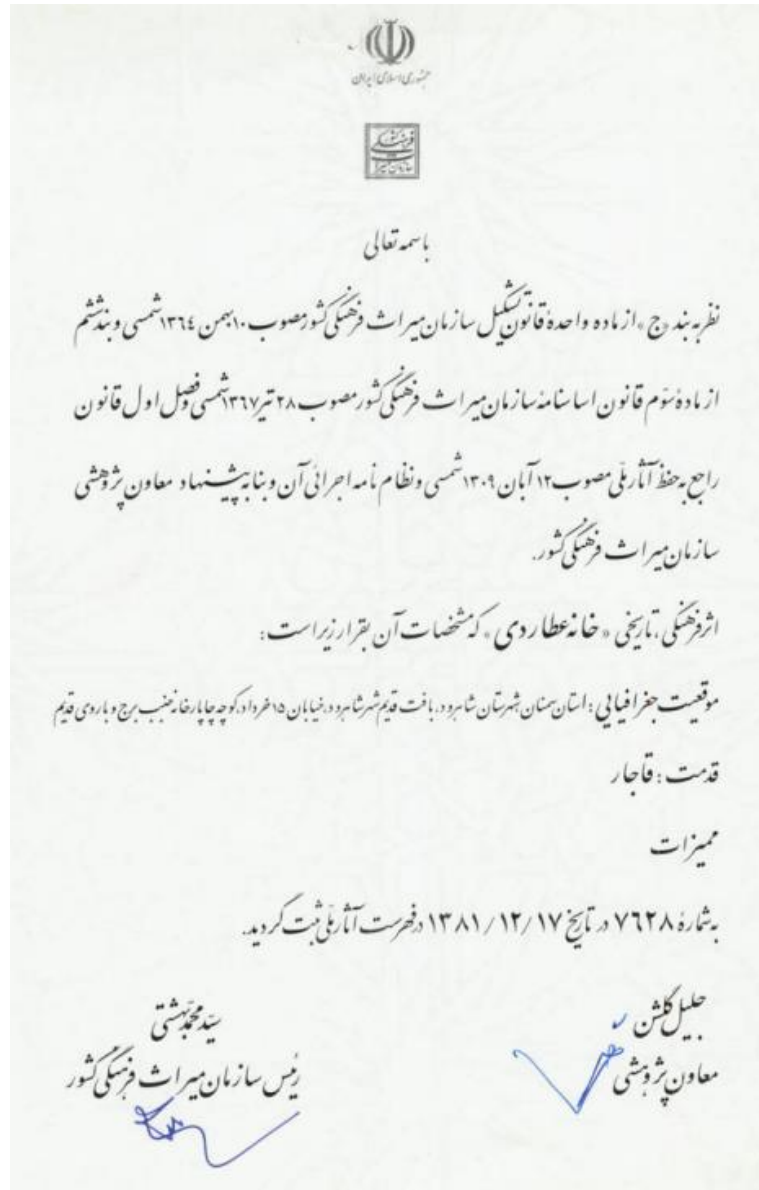 جمهوری اسلامی ایران
سازمان میراث فرهنگی کشور
باسمه تعالی
نظر به بند «ج» از ماده واحدهٔ قانون تشکیل سازمان میراث فرهنگی کشور مصوب ۱۰ بهمن ۱۳۶۴ شمسی و بند ششم
از مادهٔ سوّم قانون اساسنامهٔ سازمان میراث فرهنگی کشور مصوب ۲۸ تیر ۱۳۶۷ شمسی و فصل اول قانون
راجع به حفظ آثار ملّی مصوب ۱۲ آبان ۱۳۰۹ شمسی و نظام نامه اجرائی آن و بنا به پیشنهاد معاون پژوهشی
سازمان میراث فرهنگی کشور.
اثر فرهنگی، تاریخی «خانه عطاردی» که مشخصات آن بقرار زیر است:
موقعیت جغرافیایی: استان سمنان، شهرستان شاهرود، بافت قدیم شهر شاهرود، خیابان ۱۵ خرداد، کوچه چاپارخانه جنب برج و باروی قدیم
قدمت: قاجار
ممیزات
به شمارهٔ ۷۶۲۸ در تاریخ ۱۳۸۱/۱۲/۱۷ در فهرست آثار ملّی ثبت گردید.
جلیل گلشن
معاون پژوهشی
سیّد محمّد بهشتی
رئیس سازمان میراث فرهنگی کشور